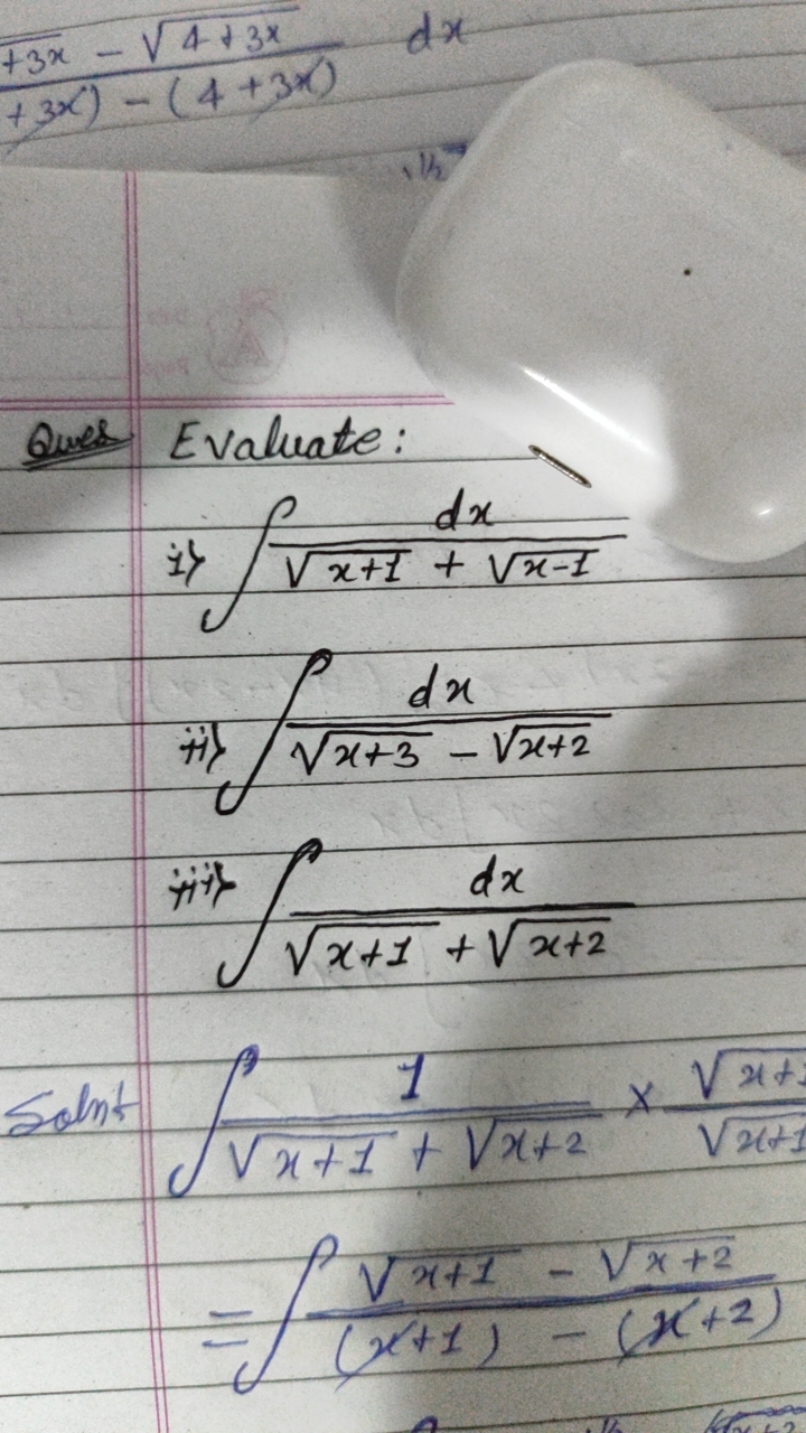 +3x - √4+3x dx
+3x) - (4+3x)
Ques Evaluate:
i> ∫ dx / (√x+1 + √x-1)
ii> ∫ dx / (√x+3 - √x+2)
iii> ∫ dx / (√x+1 + √x+2)
Soln+ ∫ 1 / (√x+1 + √x+2) × √x+1 / √x+1
= ∫ (√x+1 - √x+2) / ((x+1) - (x+2))